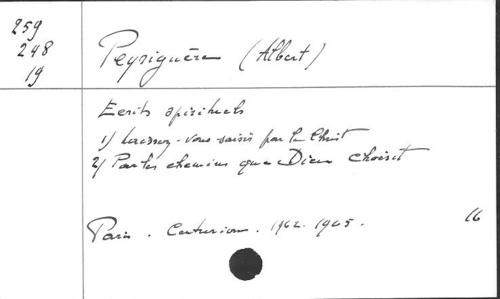 259
248
19
Peyriguère (Albert)
Ecrits spirituels
1) Laissez-vous saisir par le Christ
2/ Par les chemins que Dieu choisit
Paris. Centurion. 1962. 1965.
16